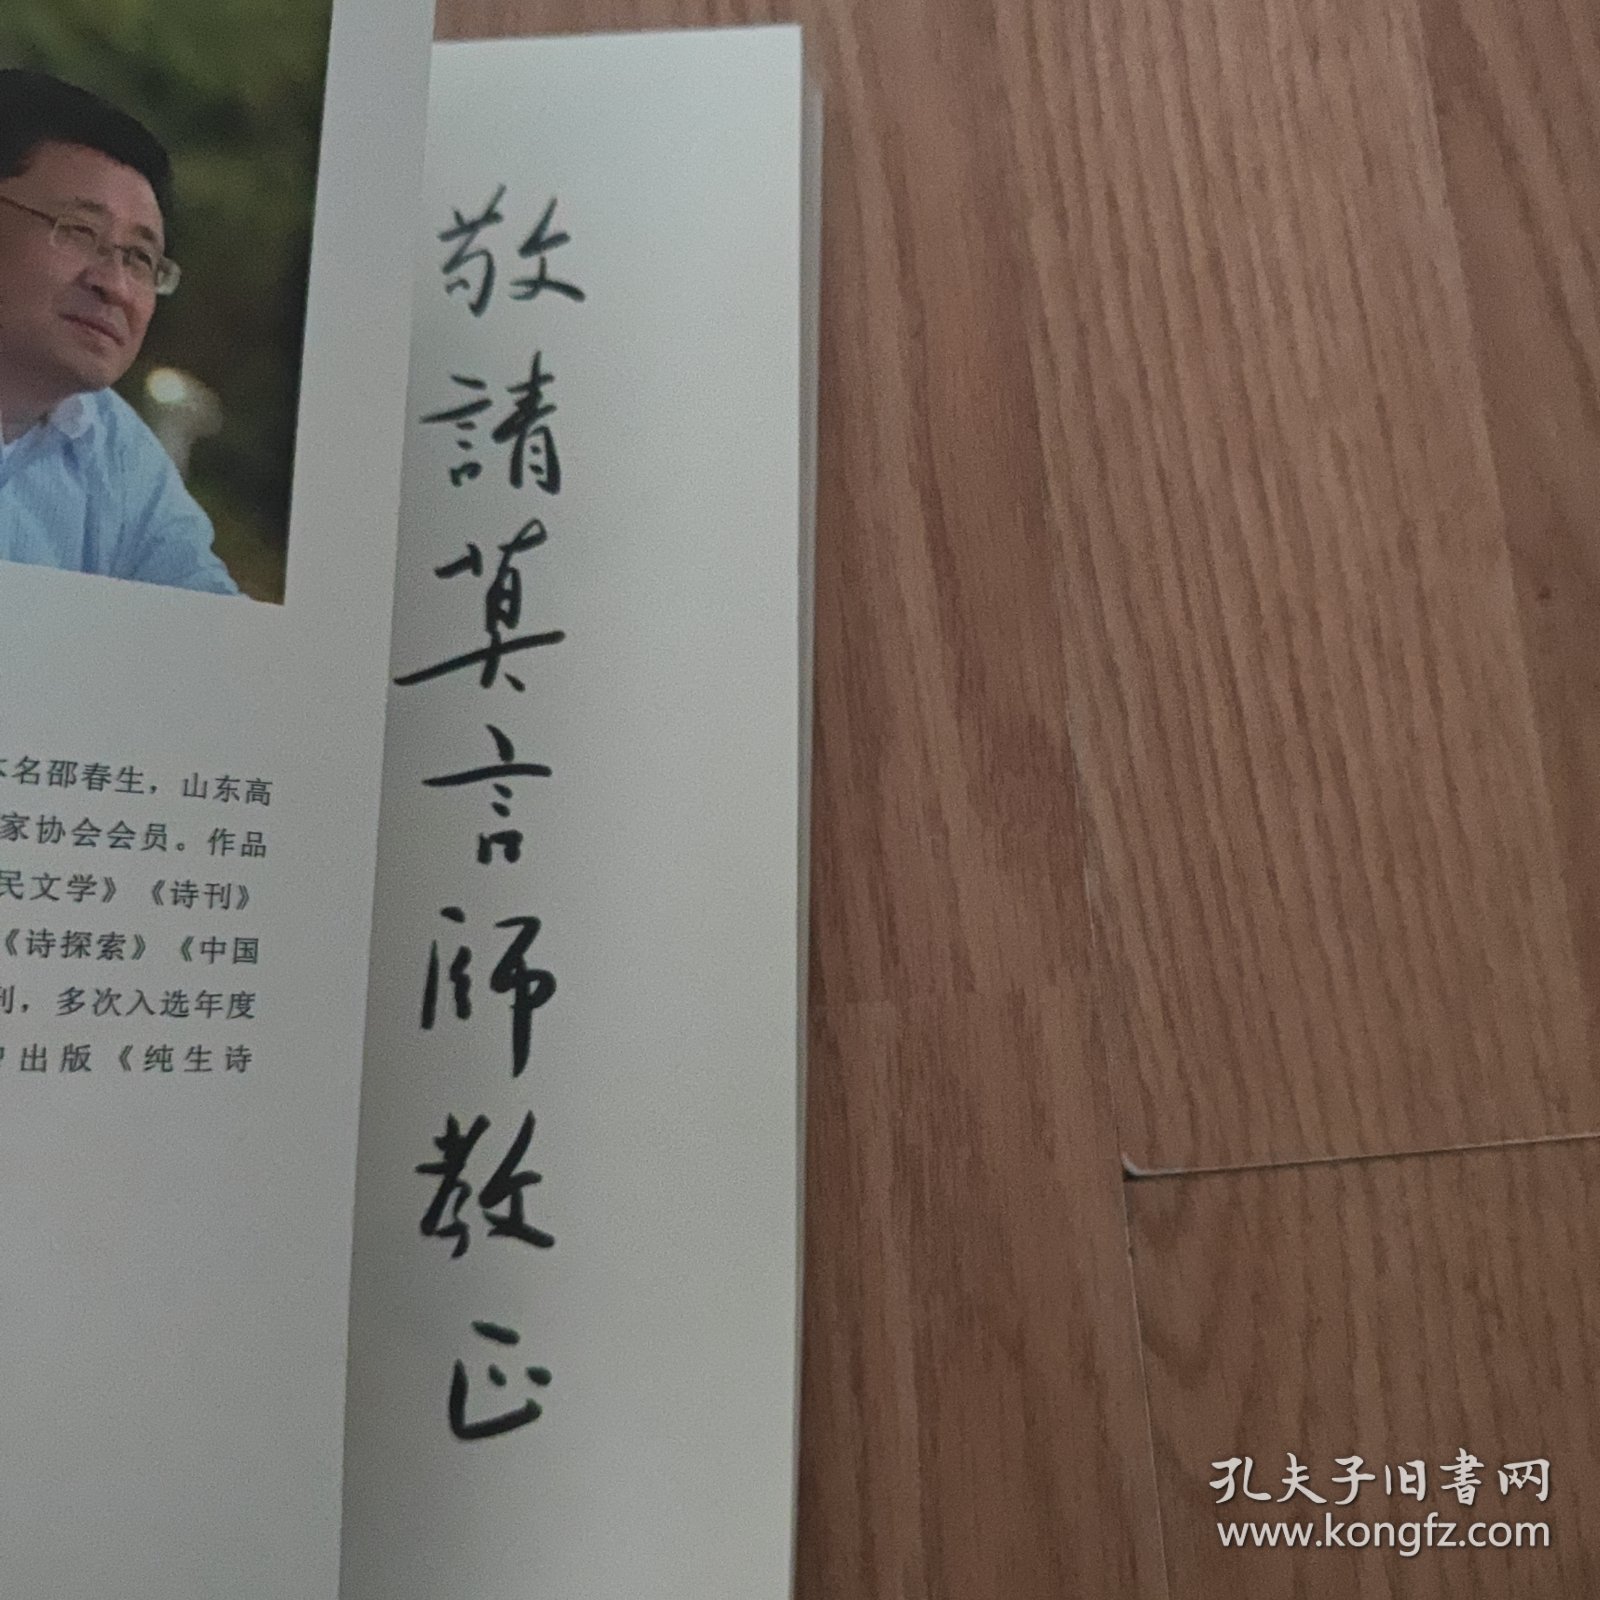 本名邵春生，山东高
家协会会员。作品
民文学》《诗刊》
《诗探索》《中国
刊，多次入选年度
出版《纯生诗
敬請莫言师教正
孔夫子旧书网
www.kongfz.com